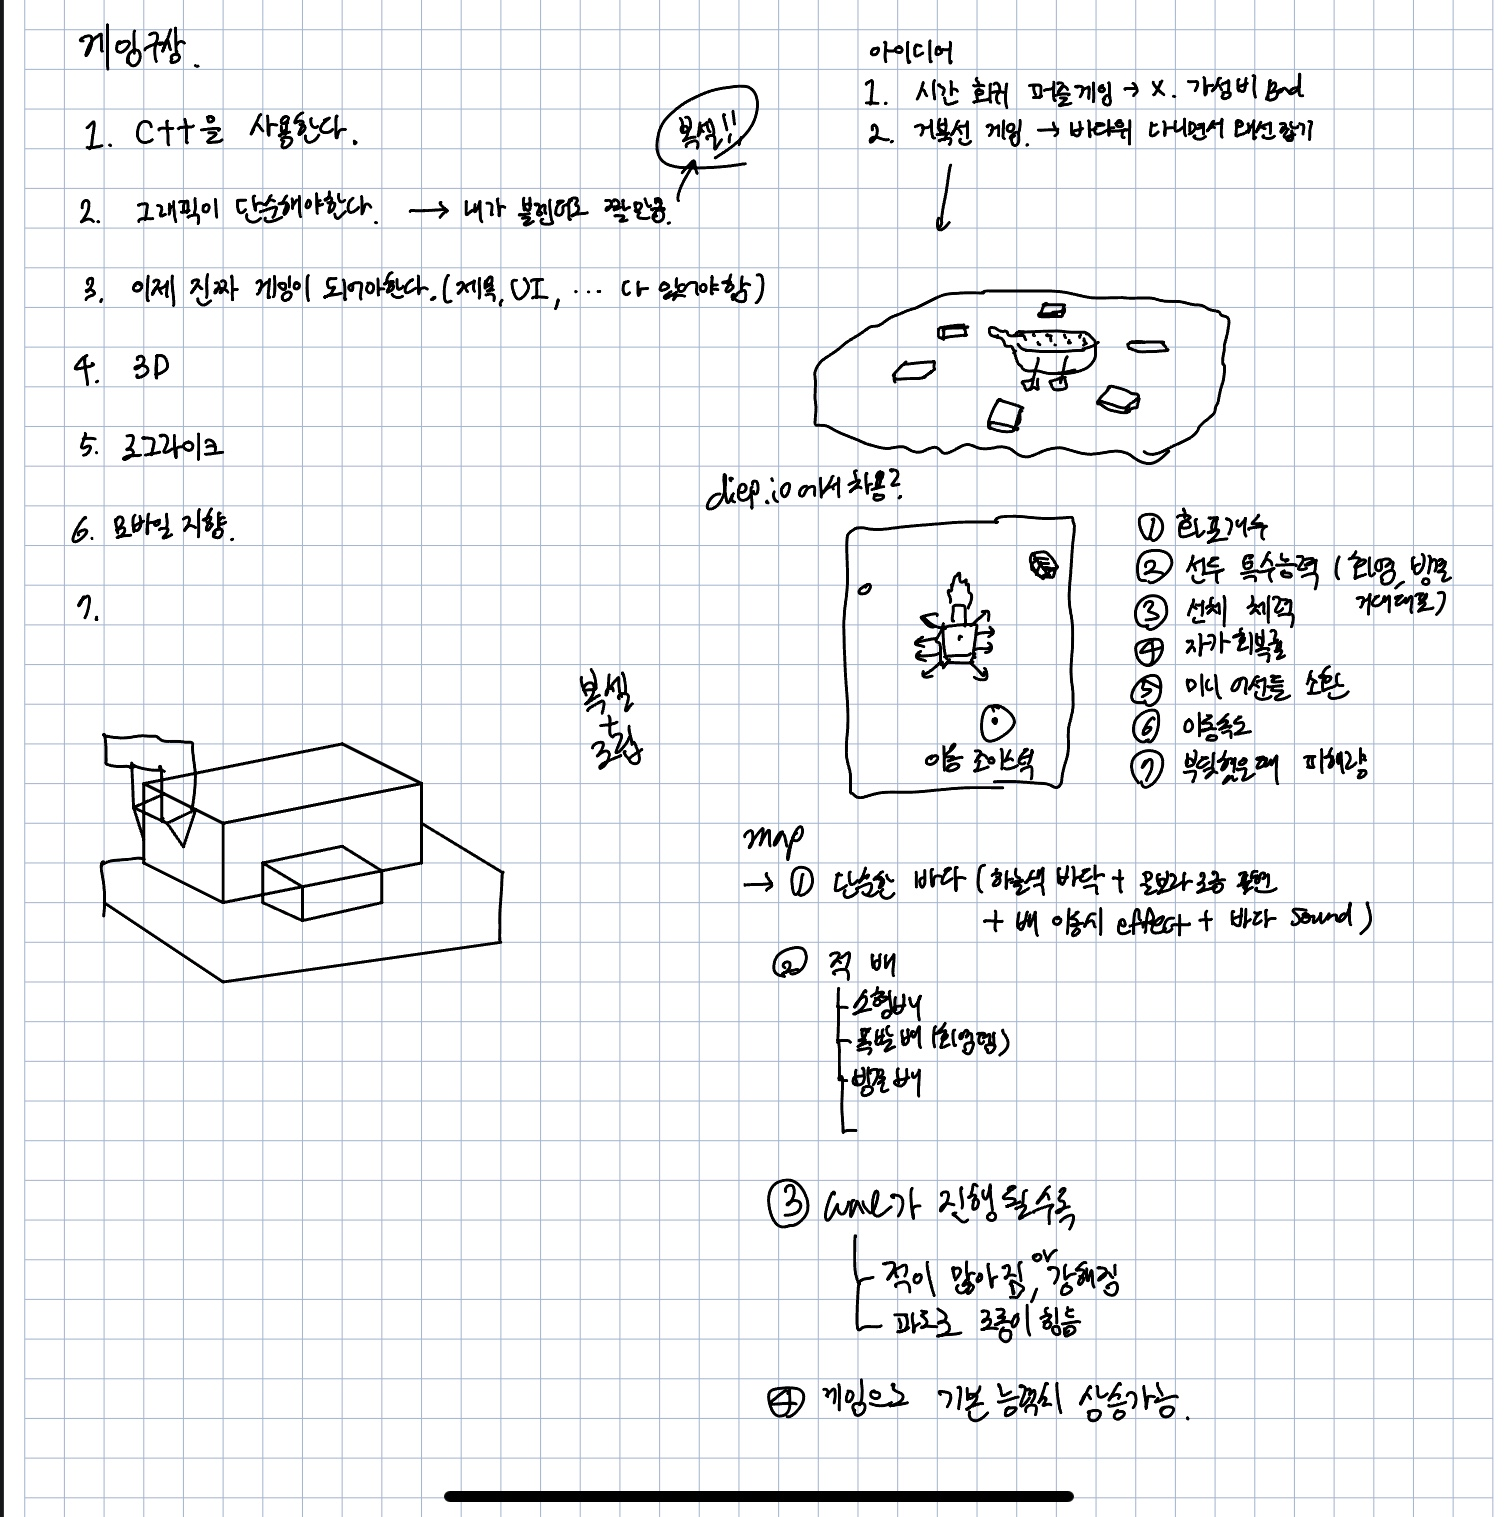 게임구상.
1. C++을 사용한다.
2. 그래픽이 단순해야한다. → 내가 블렌더로 짤만큼.
복셀!!
3. 이제 진짜 게임이 되어야한다. (제목, UI, ... 다 있어야함)
4. 3D
5. 로그라이크
6. 모바일 지향.
7.
복셀
+
조립
아이디어
1. 시간 회귀 퍼즐게임 → X. 가성비 Bad
2. 거북선 게임. → 바다위 다니면서 왜선잡기
diep.io에서 차용?
이동 조이스틱
① 화포개수
② 선두 특수능력 (화염, 빙결
거대대포)
③ 선체 체력
④ 자가회복률
⑤ 미니 어선들 소환
⑥ 이동속도
⑦ 부딪혔을때 피해량
map
→ ① 단순한 바다 (하늘색 바닥 +
+ 배 이동시 effect + 바다 sound)
② 적 배
소형배
폭발배 (화염뎀)
빙결배
③ wave가 진행될수록
적이 많아짐, or 강해짐
파도로 조종이 힘듦
④ 게임으로 기본 능력치 상승가능.